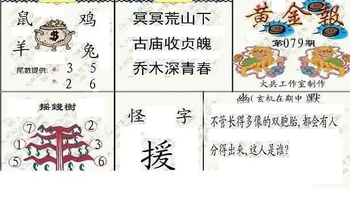 鼠 鸡
羊 兔
尾數提供: 3 5
2 6
冥冥荒山下
古庙收贞魄
乔木深青春
黄金報
第079期
火兵工作室制作
摇錢樹
⑦ ①
⑤ ⑥
② ③
怪 字
援
幽(玄机在期中)默
不管长得多像的双胞胎,都会有人
分得出来,这人是谁?